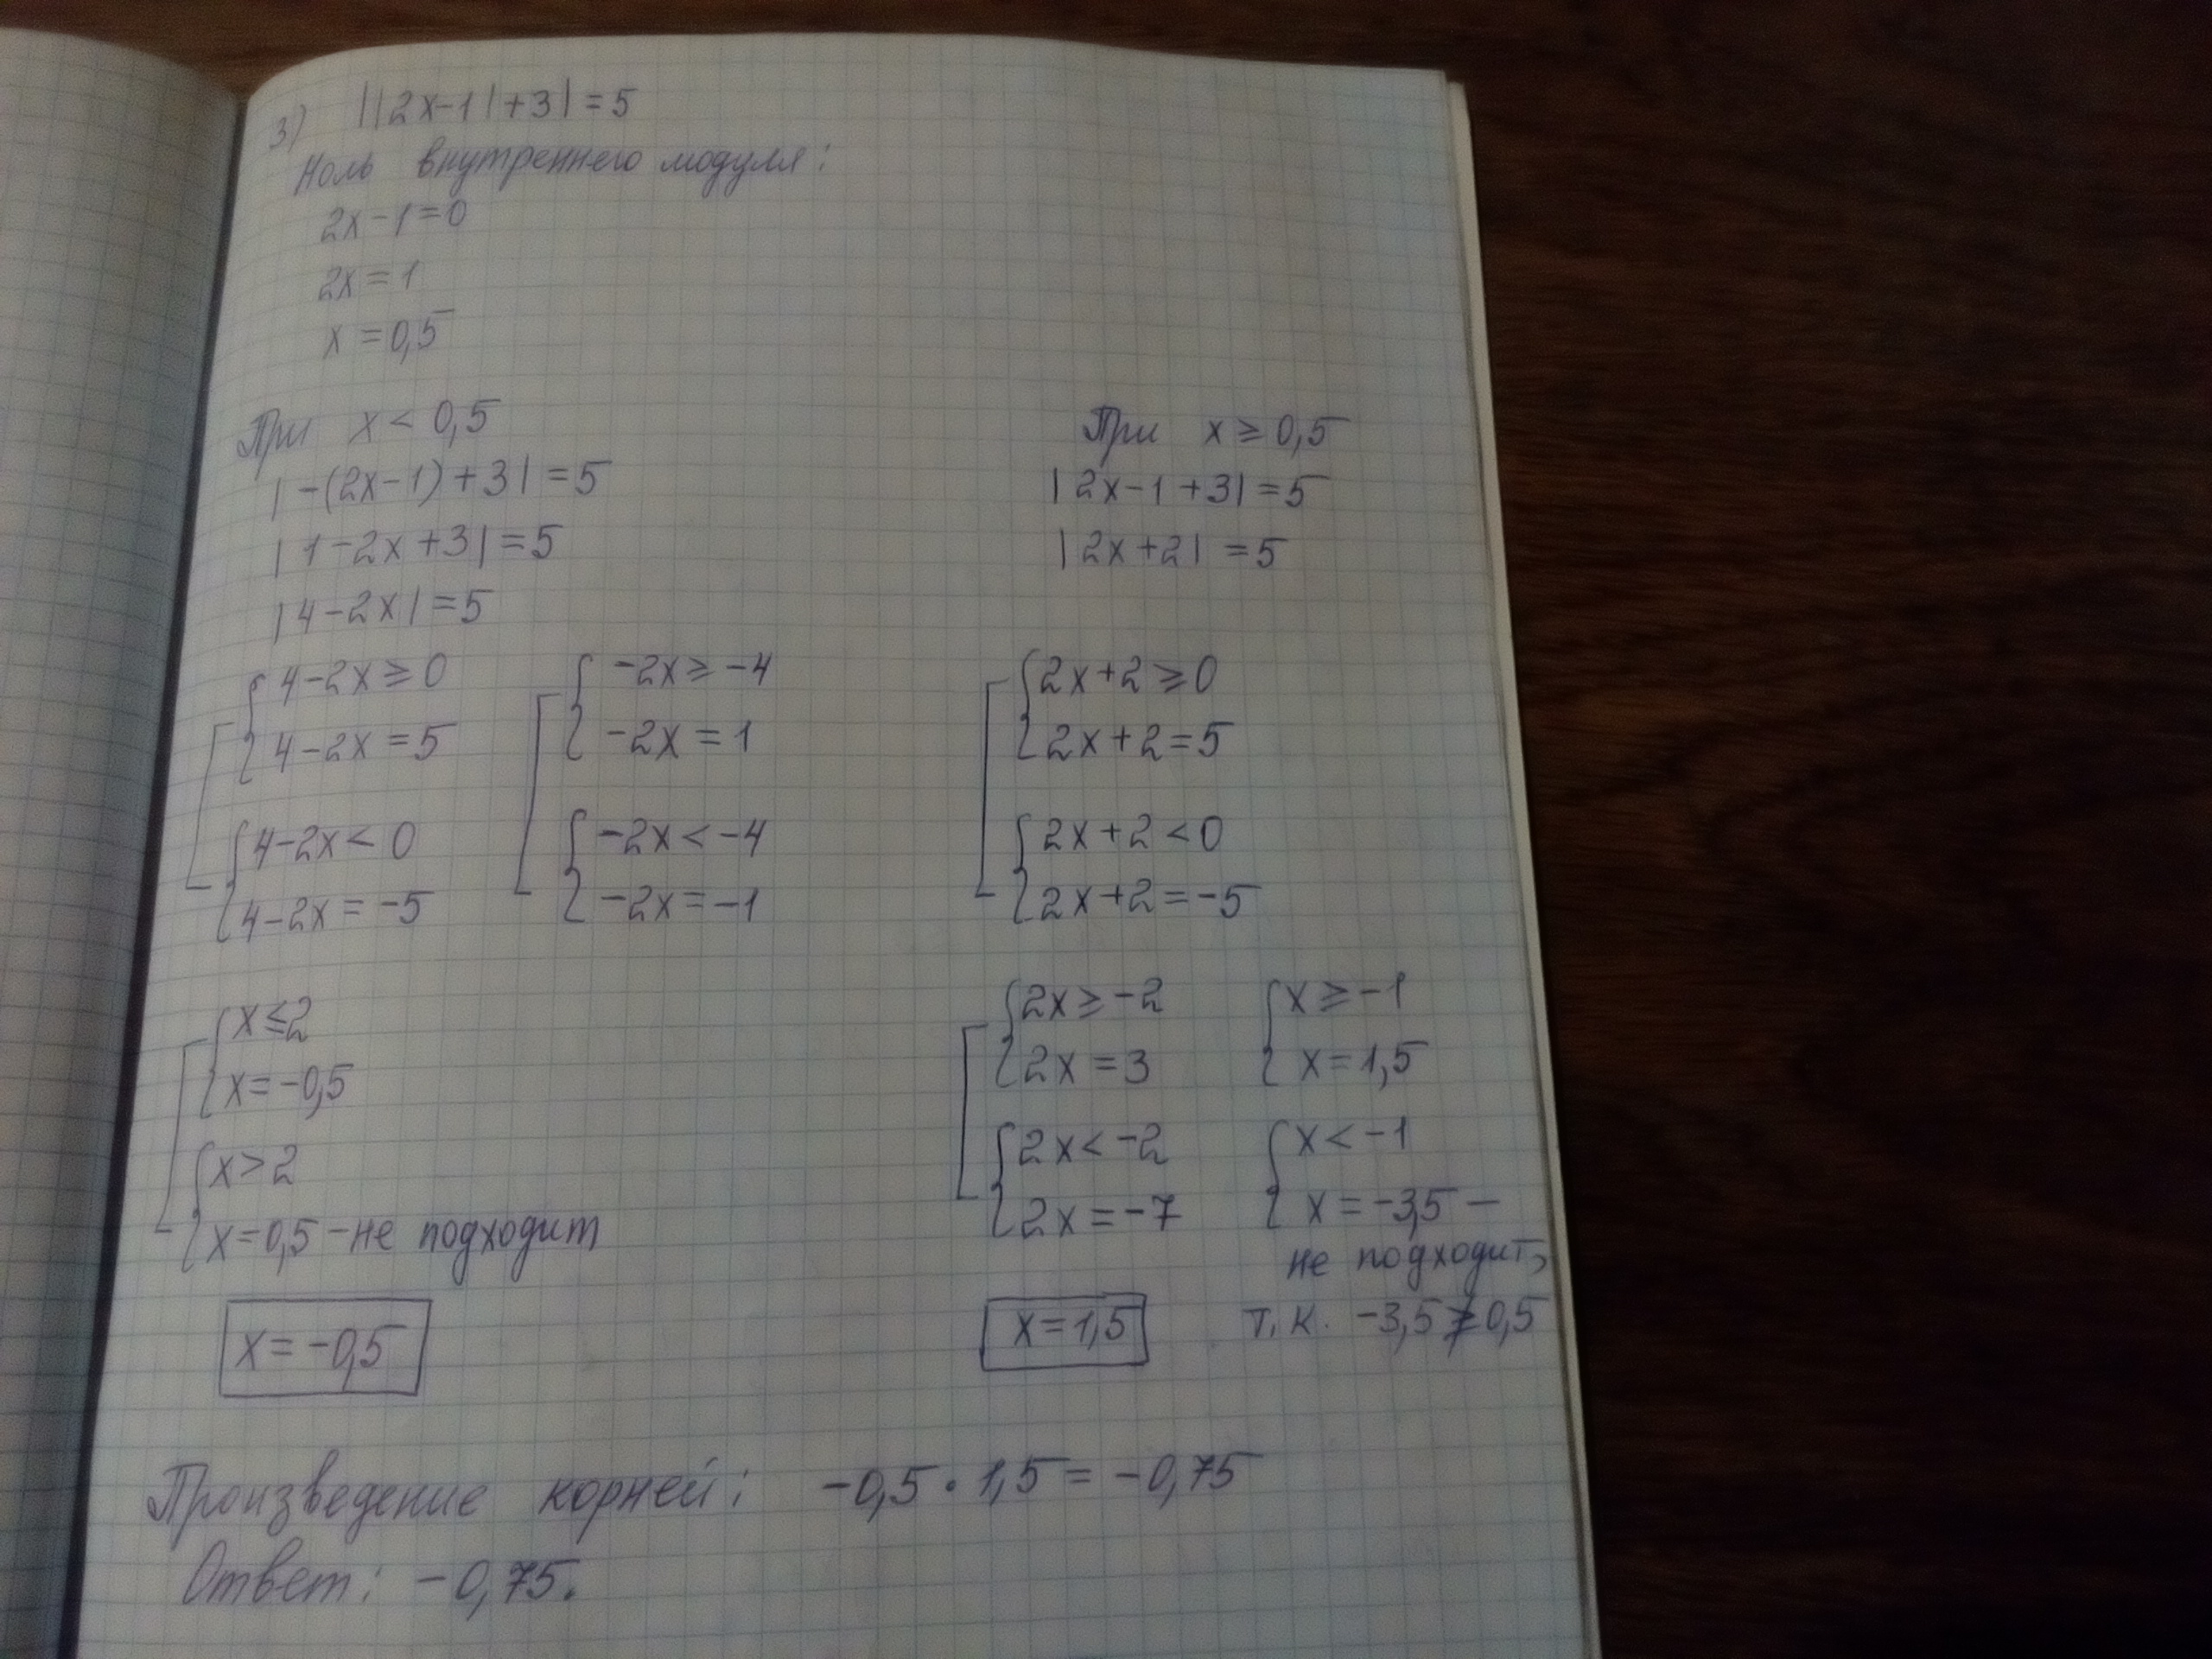 3) ||2x-1|+3|=5
Ноль внутреннего модуля:
2x-1=0
2x=1
x=0,5
При x<0,5
|-(2x-1)+3|=5
|1-2x+3|=5
|4-2x|=5
4-2x≥0
4-2x=5
4-2x<0
4-2x=-5
-2x≥-4
-2x=1
-2x<-4
-2x=-1
x≤2
x=-0,5
x>2
x=0,5-не подходит
x=-0,5
При x≥0,5
|2x-1+3|=5
|2x+2|=5
2x+2≥0
2x+2=5
2x+2<0
2x+2=-5
2x≥-2
2x=3
2x<-2
2x=-7
x≥-1
x=1,5
x<-1
x=-3,5 –
не подходит,
т.к. -3,5≱0,5
x=1,5
Произведение корней: -0,5·1,5=-0,75
Ответ: -0,75.